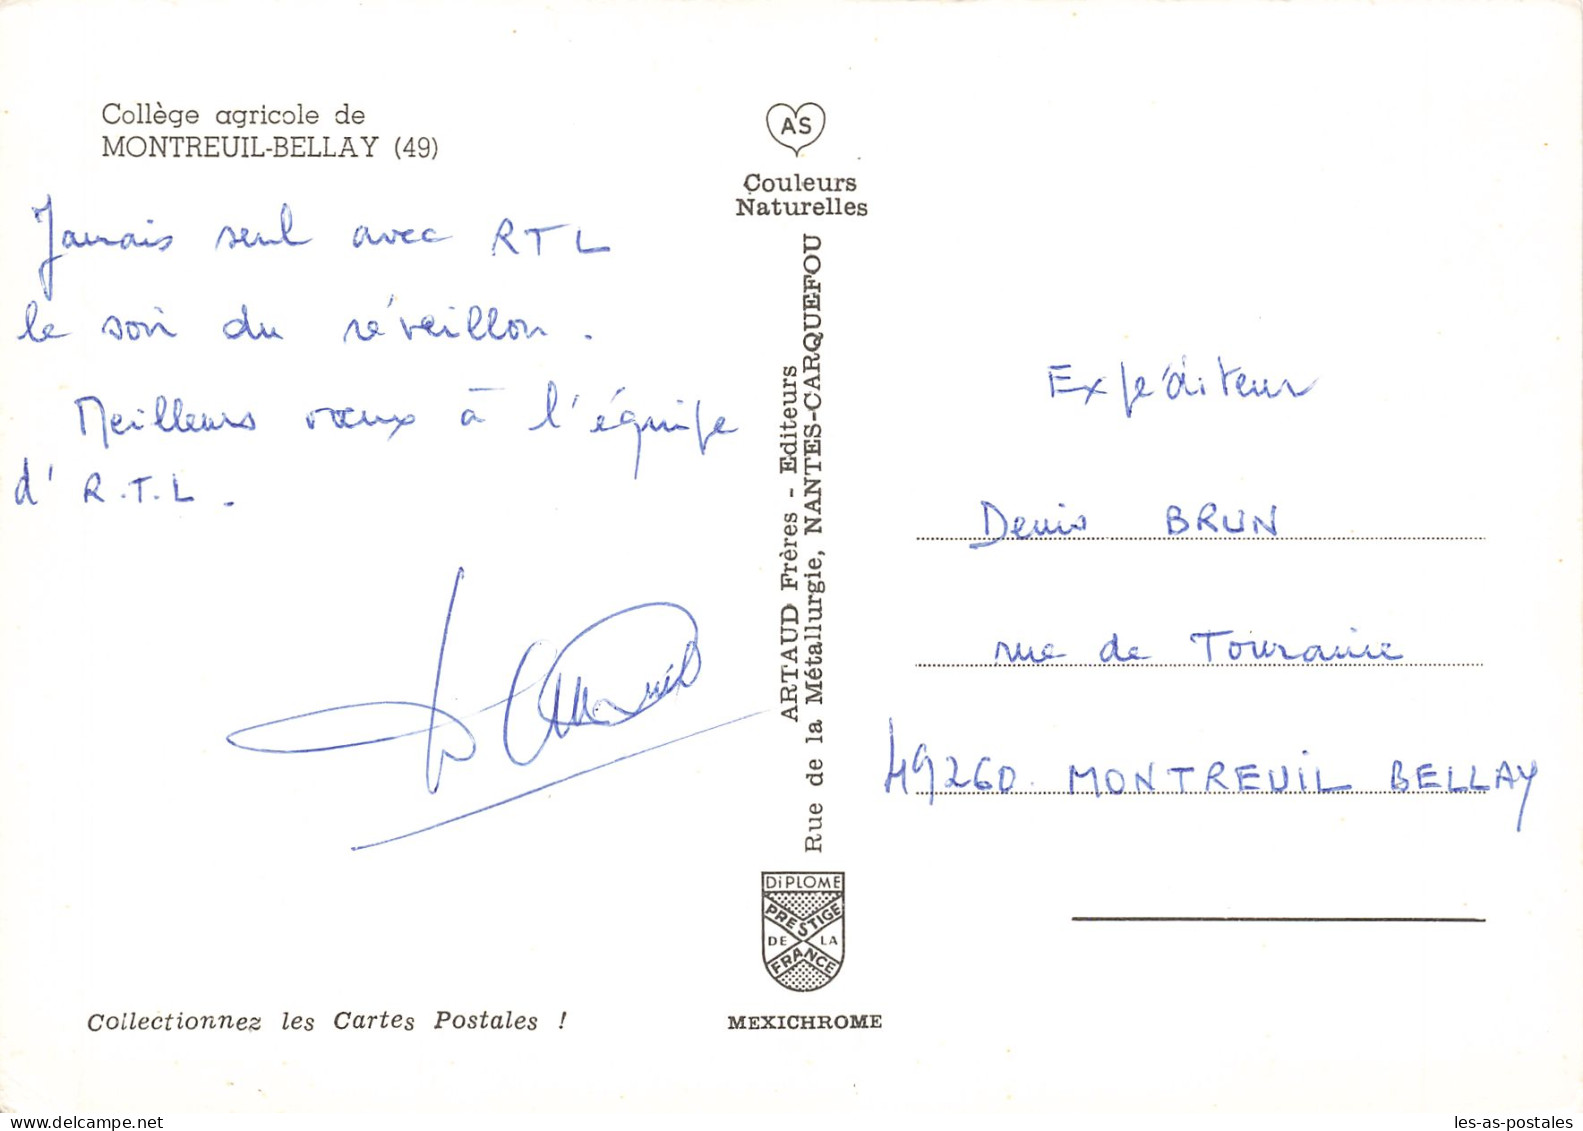 Collège agricole de
MONTREUIL-BELLAY (49)
Jamais seul avec RTL
le soir du réveillon.
Meilleurs vœux à l'équipe
d' R.T.L.
AS
Couleurs
Naturelles
ARTAUD Frères - Editeurs
Rue de la Métallurgie, NANTES-CARQUEFOU
DiPLOME
PRESTIGE
DE LA
FRANCE
MEXICHROME
Expéditeur
Denis BRUN
rue de Touraine
49260. MONTREUIL BELLAY
Collectionnez les Cartes Postales !
Delcampe.net
les-as-postales